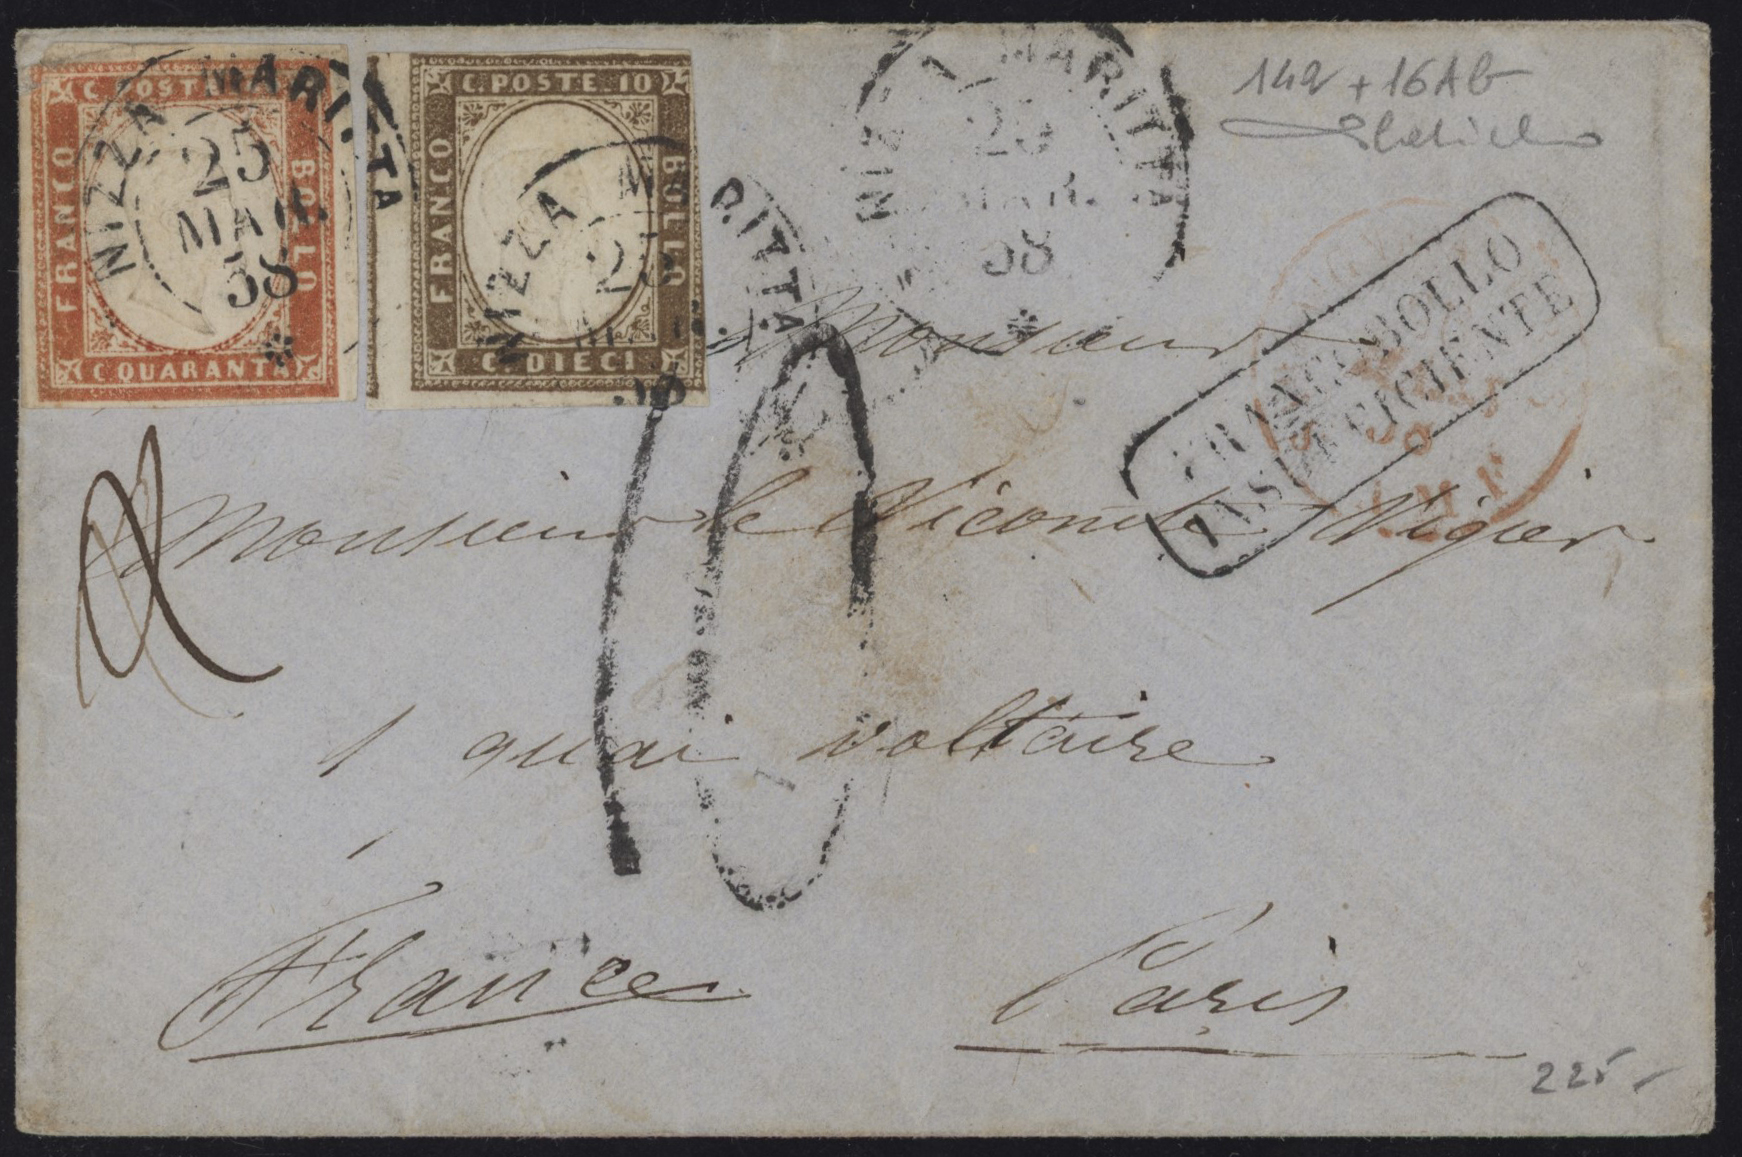 C. POSTE
FRANCO
BOLLO
C. QUARANTA
NIZZA MARITTA
25
MAR.
58
C. POSTE 10
FRANCO
BOLLO
C. DIECI
NIZZA MARITTA
25
58
NIZZA MARITTA
25
MAR.
58
142 + 16Ab
FRANCOBOLLO
INSUFFICIENTE
Monsieur
Monsieur le Vicomte Vigier
10
2
1 quai voltaire
France
Paris
225 -